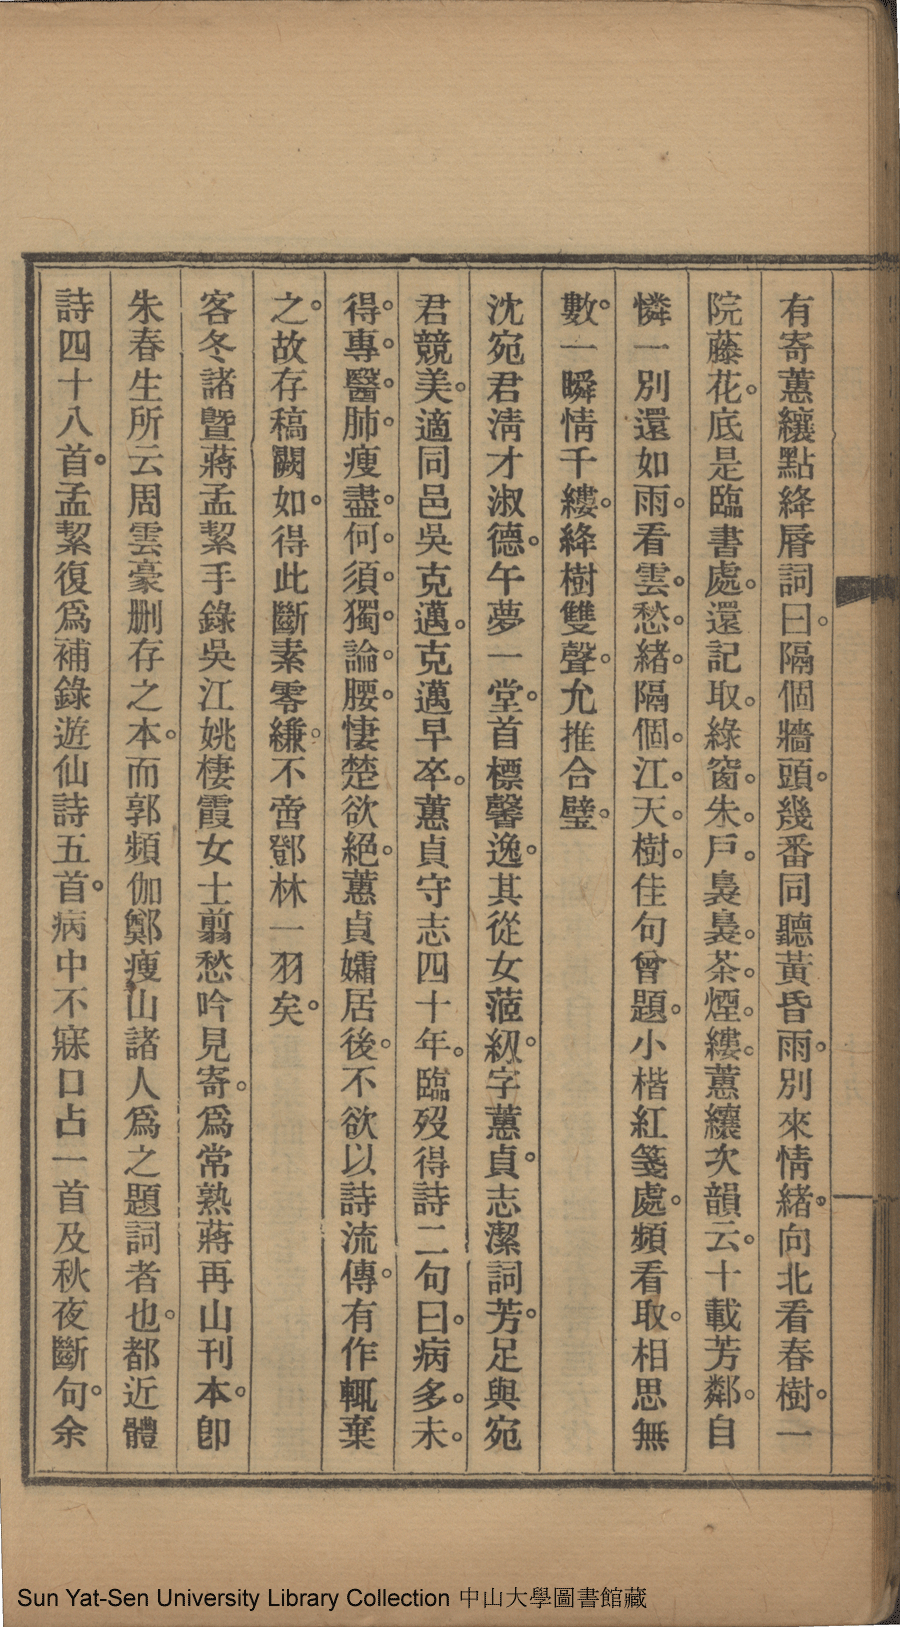 有寄蕙纕點絳脣詞曰。隔個牆頭。幾番同聽黃昏雨。別來情緒。向北看春樹。一
院藤花。底是臨書處。還記取。綠窗。朱。戶。裊裊。茶。煙。縷。蕙纕次韻云。十載芳鄰。自
憐一別還如雨。看雲。愁。緒。隔個。江。天。樹。佳句曾題。小楷紅箋處。頻看取。相思無
數。一瞬情千縷。絳樹雙聲。允推合璧。
沈宛君淸才淑德。午夢一堂。首標馨逸。其從女蒞紉。字蕙貞。志潔詞芳。足與宛
君競美。適同邑吳克邁。克邁早卒。蕙貞守志四十年。臨歿得詩二句曰。病多。未。
得。專。醫。肺。瘦盡。何。須。獨。論。腰。悽楚欲絕。蕙貞孀居後。不欲以詩流傳。有作輒棄
之。故存稿闕如。得此斷素零縑。不啻鄧林一羽矣。
客冬諸暨蔣孟絜手錄吳江姚棲霞女士翦愁吟見寄。爲常熟蔣再山刊本。卽
朱春生所云周雲豪删存之本。而郭頻伽鄭瘦山諸人爲之題詞者也。都近體
詩四十八首。孟絜復爲補錄遊仙詩五首。病中不寐口占一首及秋夜斷句。余
Sun Yat-Sen University Library Collection 中山大學圖書館藏